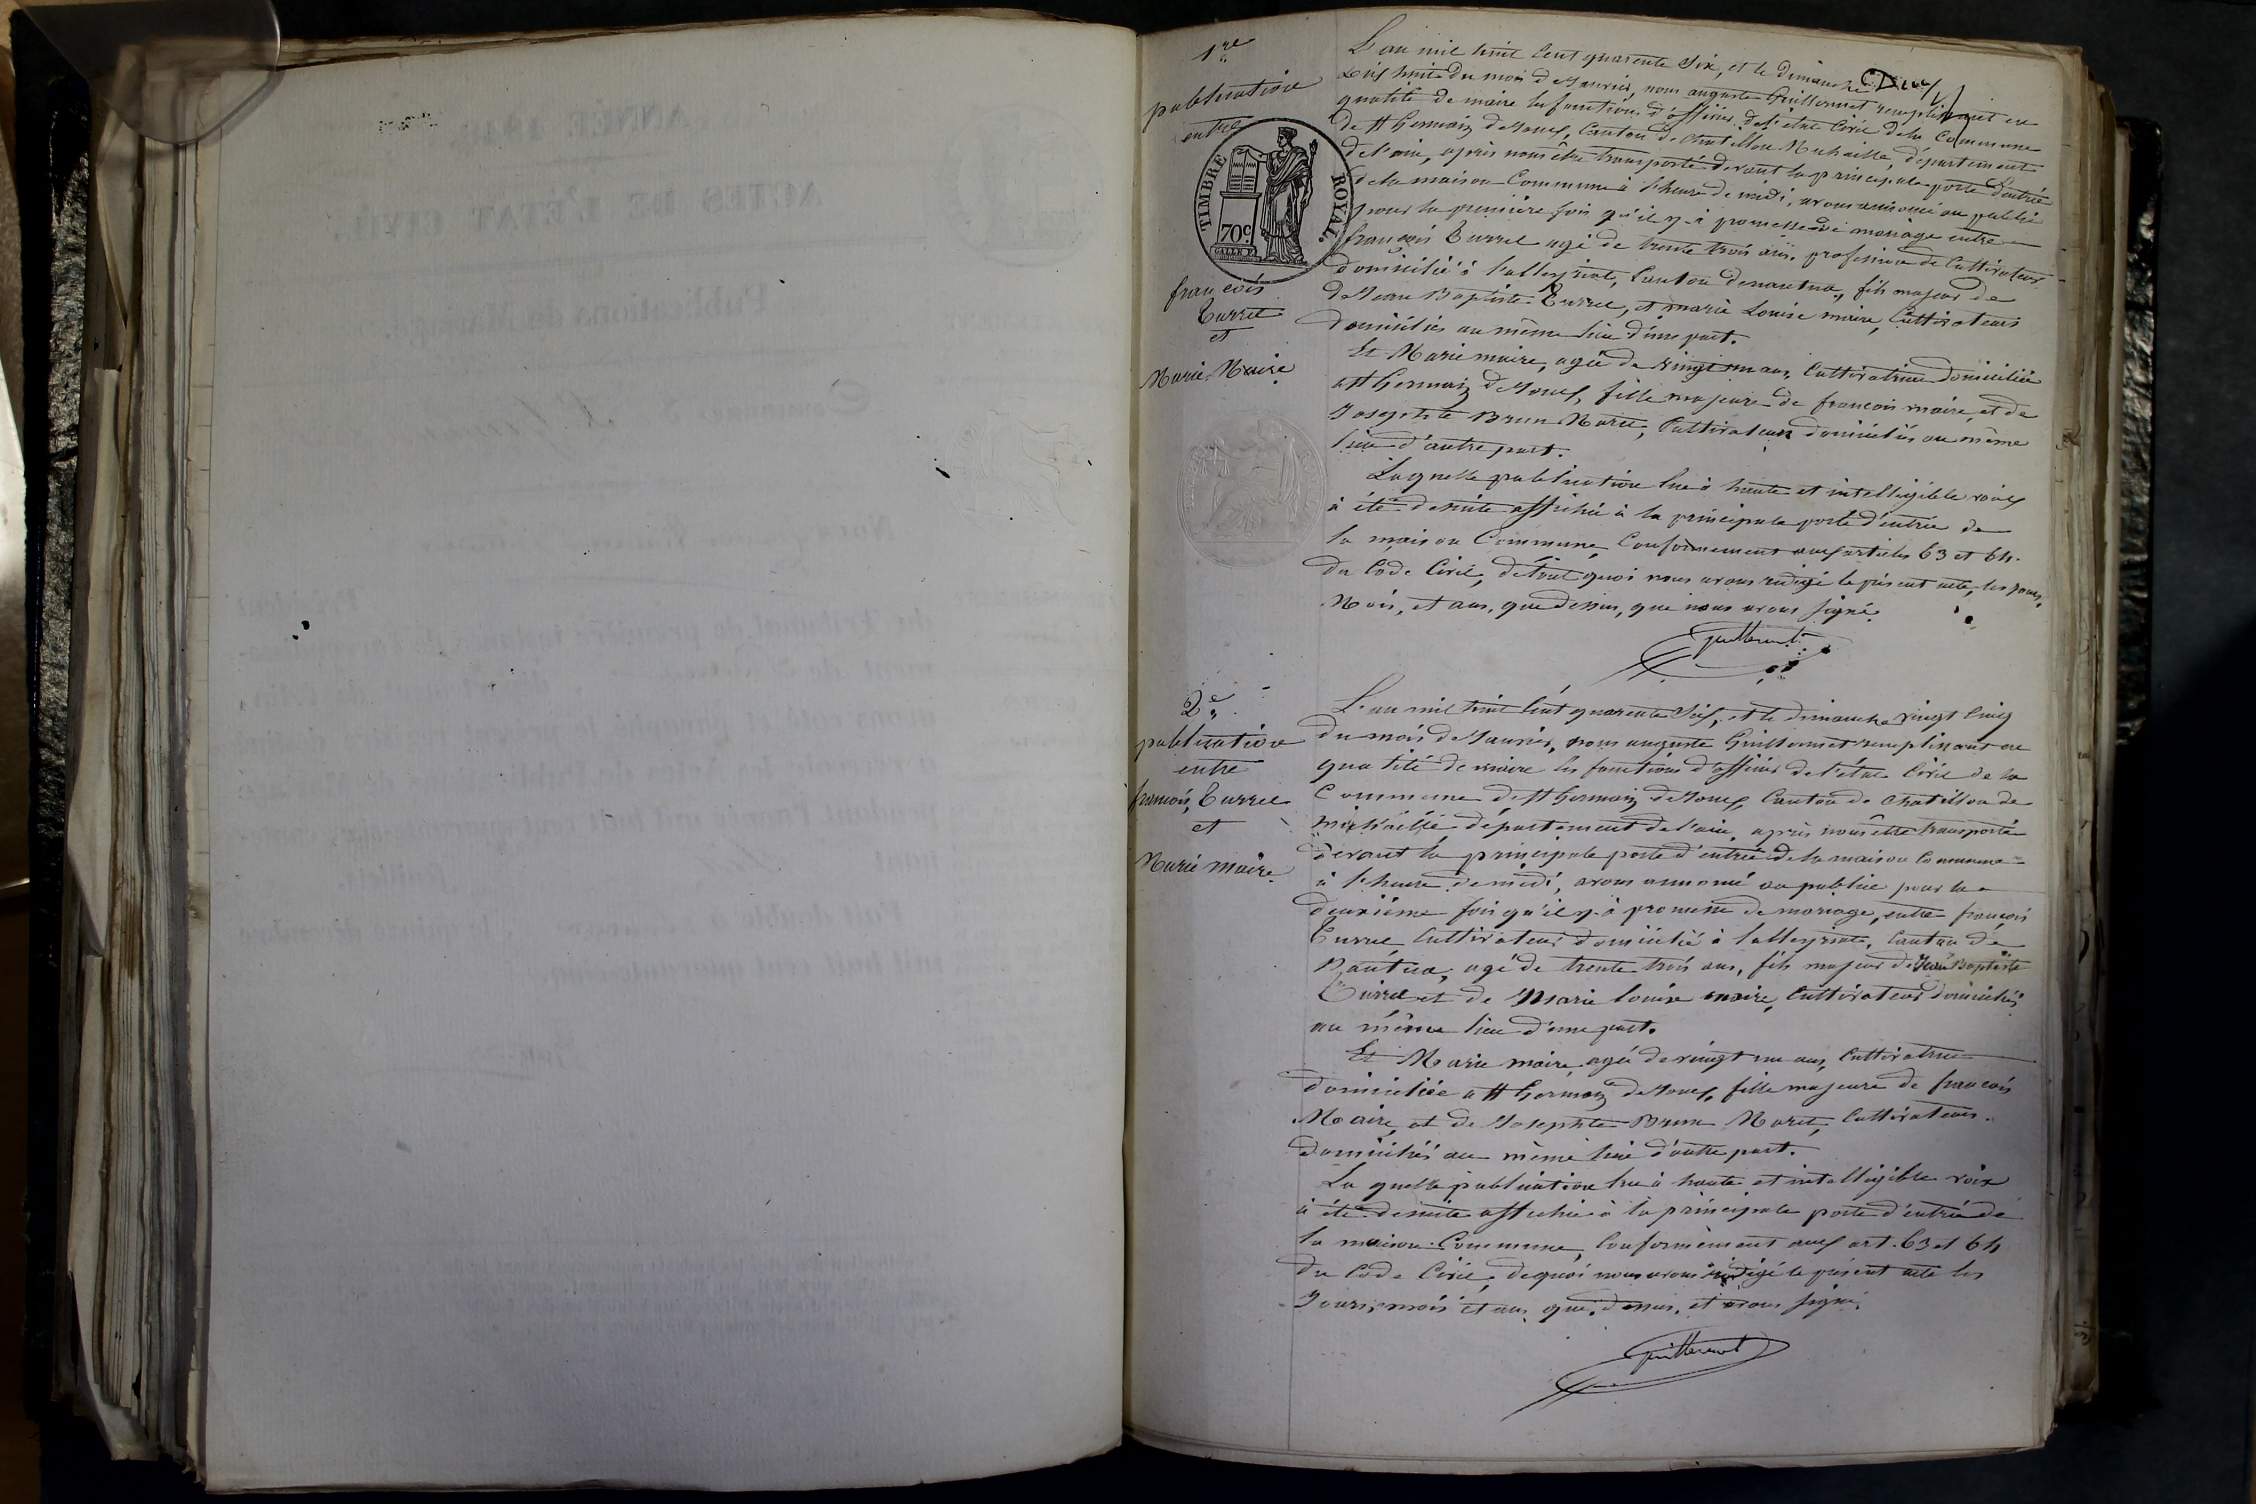 1re
publication
entre
TIMBRE ROYAL.
70c.
françois
Turrel
et
Marie Maire
L'an mil huit cent quarente six, et le dimanche
dix huit du mois de Janvier, nous auguste Guillermet remplissant en
qualité de maire les fonctions d'officier de l'état Civil de la Commune
de St Germain de Joux, Canton de Chatillon Michaille, département
de l'ain, après nous être transporté devant la principale porte d'entrée
de la maison Commune à l'heure de midi, avons annoncé ou publié
pour la première fois qu'il y à promesse de mariage entre
françois Turrel agé de trente trois ans, profession de Cultivateur
domicilié à lalleyriat, Canton de nantua, fils majeur de
de Jean Baptiste Turrel, et marie Louise maire, Cultivateurs
domiciliés au même lieu d'une part.
Et Marie maire, agée de vingt un ans, Cultivatrice domiciliée
a St Germain de Joux, fille majeure de francois maire, et de
Josephte Brun Maret, Cultivateurs domiciliés au même
lieu d'autre part.
Laquelle publication lue à haute et intelligible voix
à été desuite affichée à la principale porte d'entrée de
la maison Commune, Conformement aux articles 63 et 64.
du Code Civil, de tout quoi nous avons rédigé le présent acte, les jours,
Mois, et ans, que dessus, que nous avons signé.
Guillermet
2e
publication
entre
francois Turrel
et
Marie maire
L'an mil huit cent quarente six, et le dimanche vingt cinq
du mois de Janvier, nous auguste Guillermet remplissant en
qualité de maire les fonctions d'officier de l'état Civil de la
Commune de St Germain de Joux, Canton de Chatillon de
michaille, département de l'ain, après nous être transporté
devant la principale porte d'entrée de la maison Commune
à l'heure de midi, avons annoncé ou publié pour la
deuxième fois qu'il y à promesse de mariage, entre françois
Turrel Cultivateur domicilié à lalleyriat, Canton de
Nantua, agé de trente trois ans, fils majeur de Jean Baptiste
Turrel et de Marie louise maire, Cultivateurs domiciliés
au même lieu d'une part.
Et Marie maire, agée de vingt un ans, Cultivatrice
domiciliée a St Germain de Joux, fille majeure de francois
Maire, et de Josephte Brun Maret, Cultivateurs
domiciliés au même lieu d'autre part.
La quelle publication lue à haute et intelligible voix
à été desuite affichée à la principale porte d'entrée de
la maison Commune, Conformément aux art. 63 et 64
du Code Civil, de quoi nous avons rédigé le présent acte les
Jours, mois et ans que dessus, et avons signé.
Guillermet